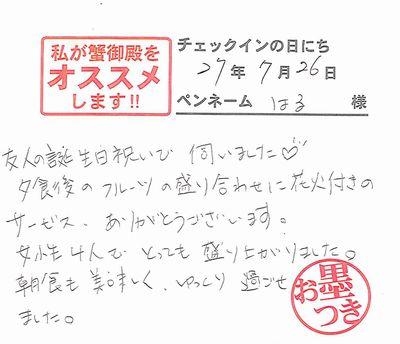 私が蟹御殿を
オススメ
します!!
チェックインの日にち
27年7月26日
ペンネーム はる 様
友人の誕生日祝いで 伺いました♡
夕食後のフルーツの盛り合わせに花火付きの
サービス、ありがとうございます。
女性4人で とっても 盛り上がりました。
朝食も 美味しく、ゆっくり 過ごせ
ました。
お墨つき